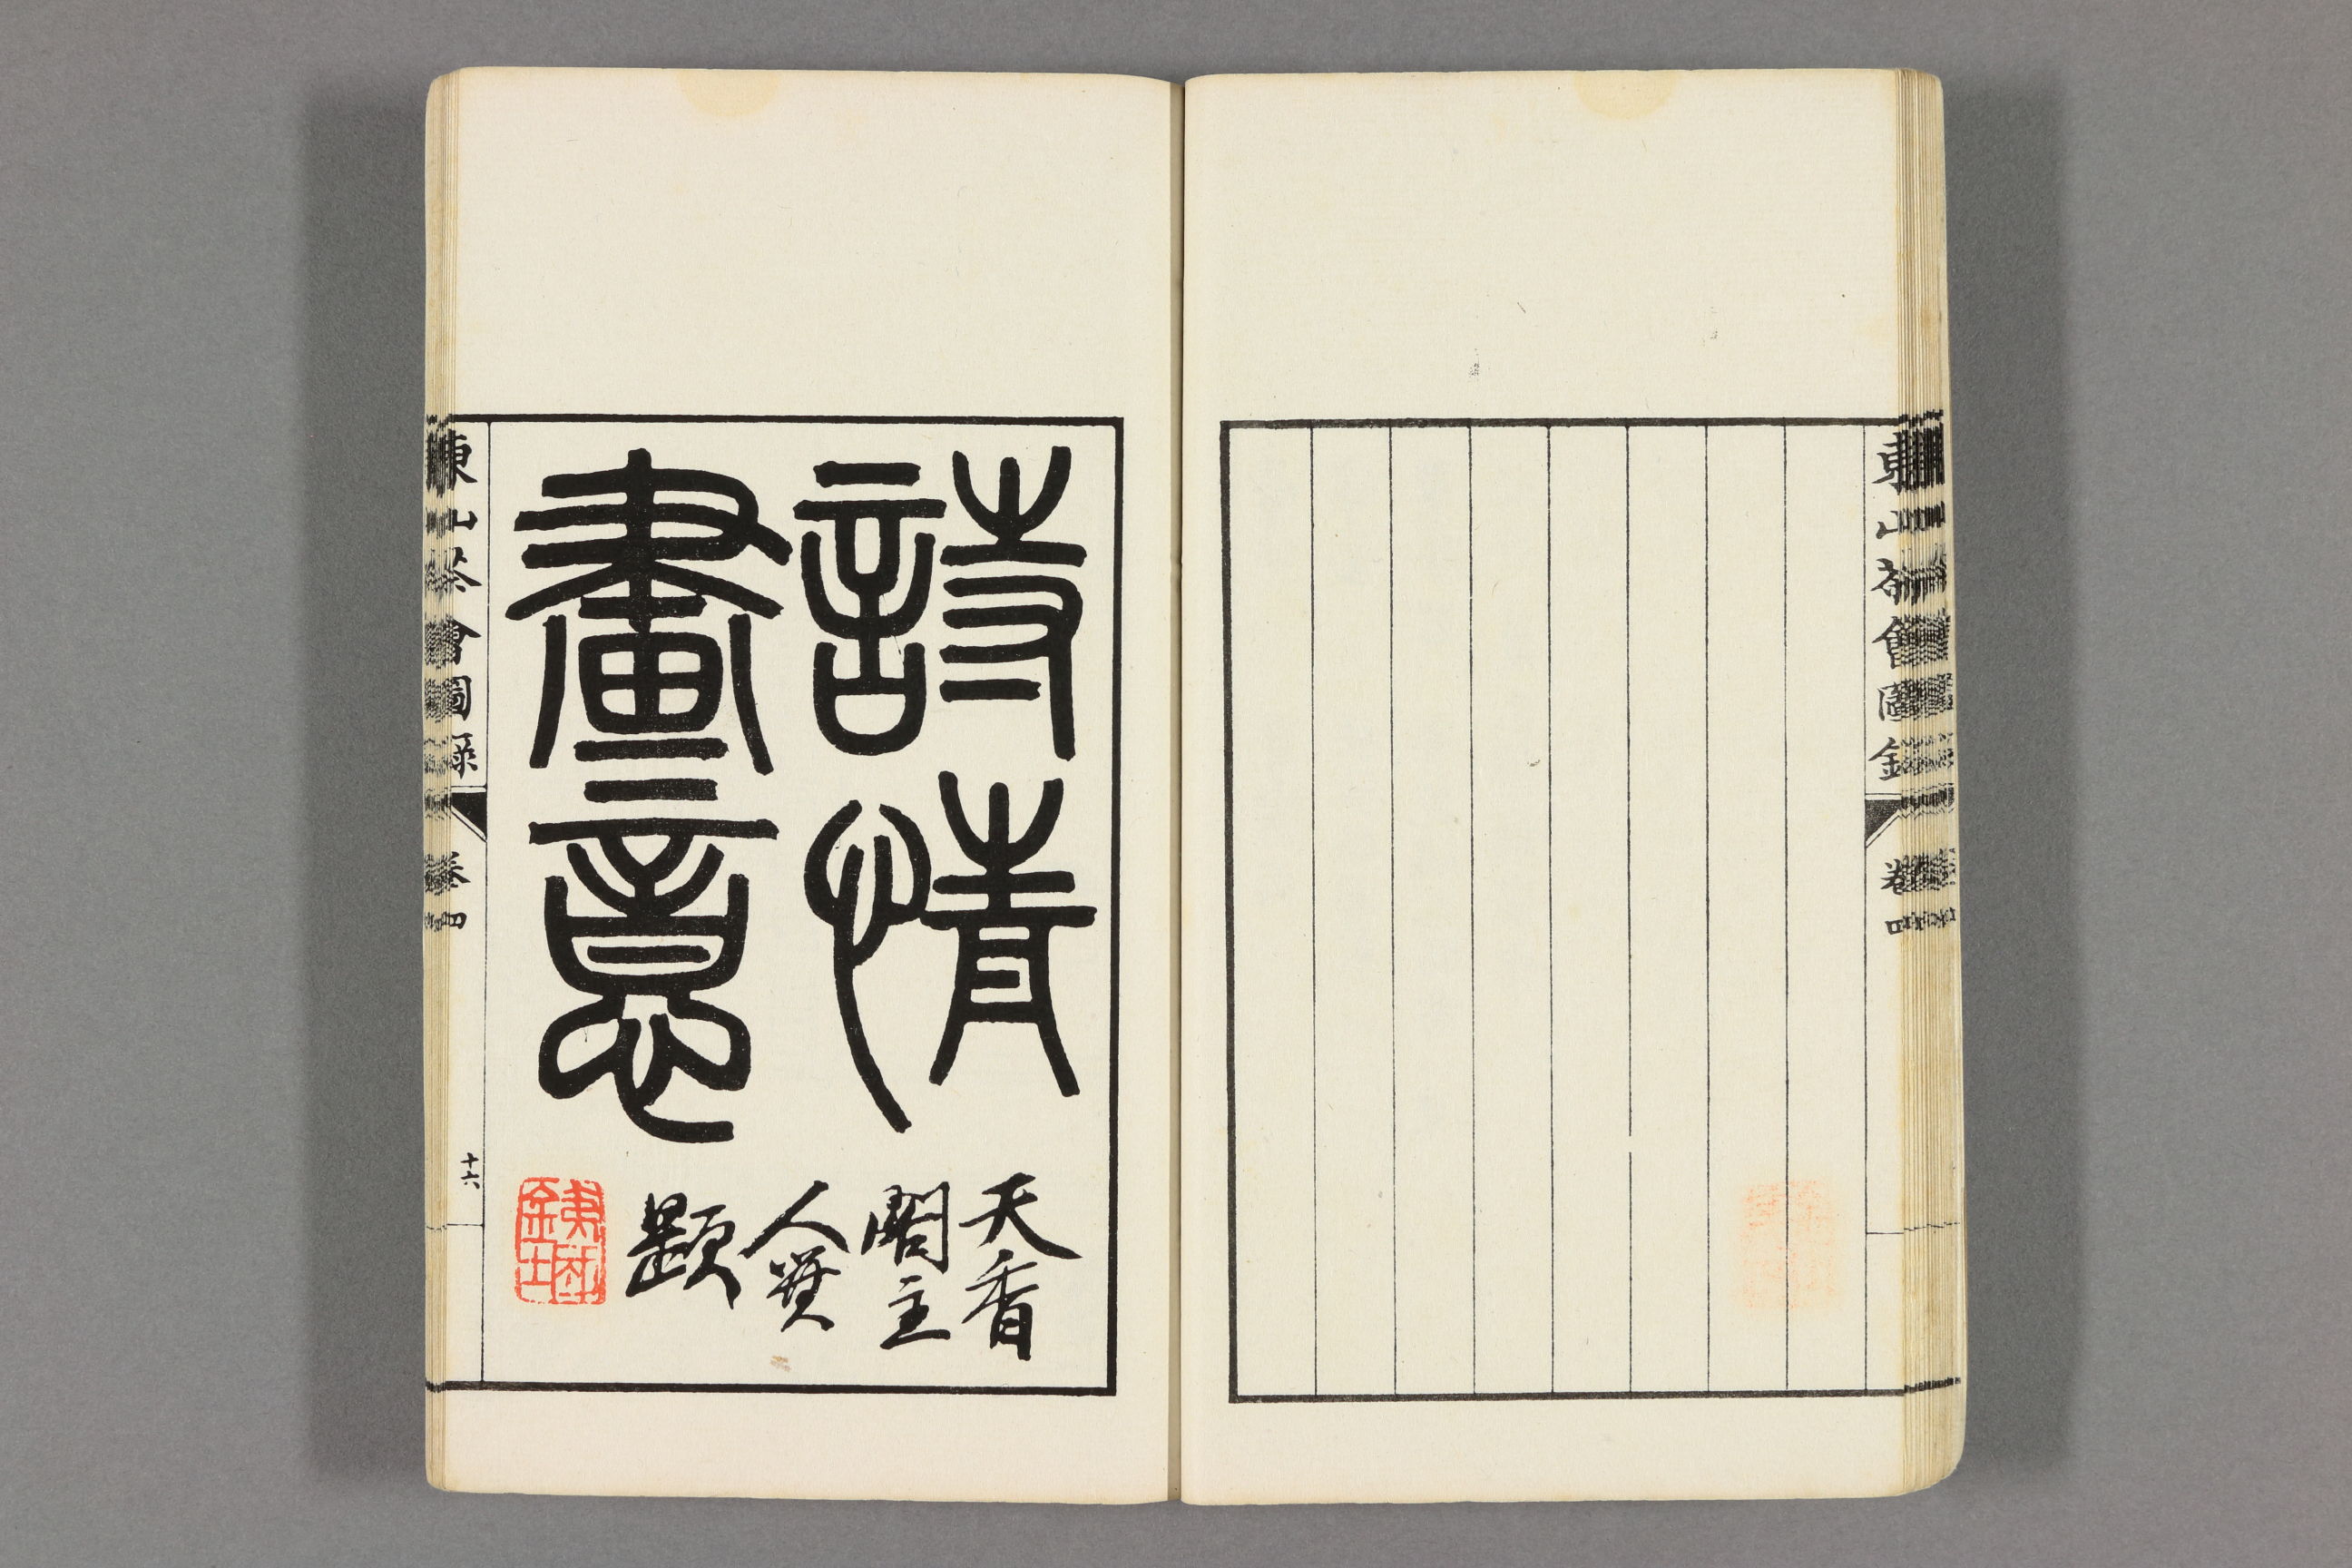 東山茶會圖録
卷四
詩情
畫意
天香
閣主
人
題
東山茶會圖録
卷四
十六